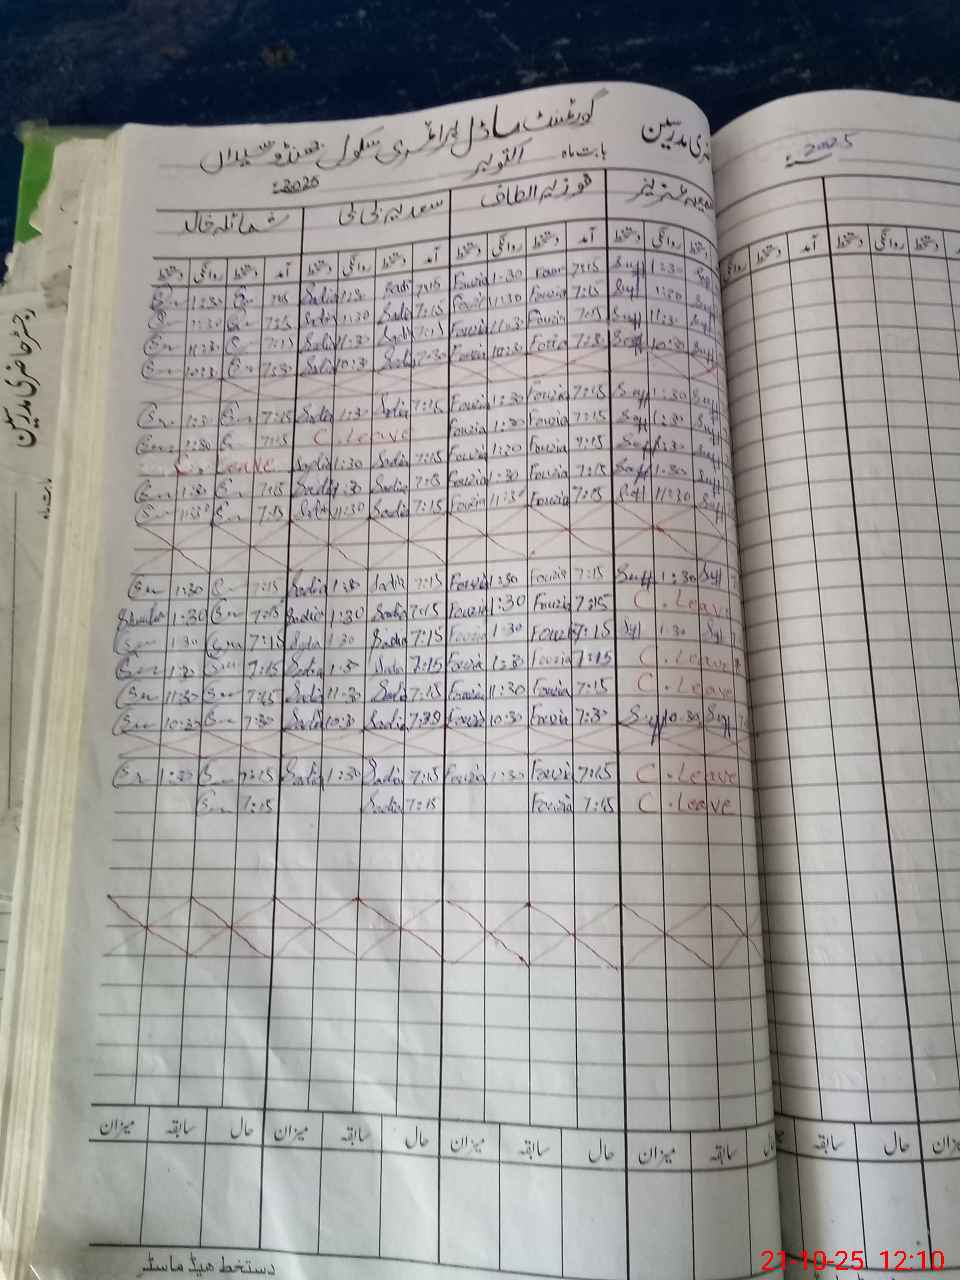 گورنمنٹ ماڈل پرائمری سکول جھنڈو سیداں
حاضری مدرسین
بابت ماہ اکتوبر 2025ء
2025ء
فوزیہ الطاف سعدیہ بی بی شمائلہ خالد
دستخط روانگی دستخط آمد دستخط روانگی دستخط آمد دستخط روانگی دستخط آمد دستخط روانگی دستخط
آمد دستخط روانگی دستخط
1:30 7:15 Sadia 1:30 Sadia 7:15 Fouzia 1:30 Fouzia 7:15 Suff 1:30 Suff
1:30 7:15 Sadia 1:30 Sadia 7:15 Fouzia 11:30 Fouzia 7:15 Suff 1:30 Suff
11:30 7:15 Sadia 11:30 Sadia 7:15 Fouzia 11:30 Fouzia 7:15 Suff 11:30 Suff
10:30 7:30 Sadia 10:30 Sadia 7:30 Fouzia 10:30 Fouzia 7:30 Suff 10:30 Suff
1:30 7:15 Sadia 1:30 Sadia 7:15 Fouzia 1:30 Fouzia 7:15 Suff 1:30 Suff
1:30 7:15 C. Leave Fouzia 1:30 Fouzia 7:15 Suff 1:30 Suff
C. Leave Sadia 1:30 Sadia 7:15 Fouzia 1:30 Fouzia 7:15 Suff 1:30 Suff
1:30 7:15 Sadia 1:30 Sadia 7:15 Fouzia 1:30 Fouzia 7:15 Suff 1:30 Suff
11:30 7:15 Sadia 11:30 Sadia 7:15 Fouzia 11:30 Fouzia 7:15 Suff 11:30 Suff
1:30 7:15 Sadia 1:30 Sadia 7:15 Fouzia 1:30 Fouzia 7:15 Suff 1:30 Suff
1:30 7:15 Sadia 1:30 Sadia 7:15 Fouzia 1:30 Fouzia 7:15 C. Leave
1:30 7:15 Sadia 1:30 Sadia 7:15 Fouzia 1:30 Fouzia 7:15 Suff 1:30 Suff
1:30 7:15 Sadia 1:30 Sadia 7:15 Fouzia 1:30 Fouzia 7:15 C. Leave
11:30 7:15 Sadia 11:30 Sadia 7:15 Fouzia 11:30 Fouzia 7:15 C. Leave
10:30 7:30 Sadia 10:30 Sadia 7:30 Fouzia 10:30 Fouzia 7:30 Suff 10:30 Suff
1:30 7:15 Sadia 1:30 Sadia 7:15 Fouzia 1:30 Fouzia 7:15 C. Leave
7:15 Sadia 7:15 Fouzia 7:15 C. Leave
حال سابقہ میزان حال سابقہ میزان حال سابقہ میزان حال سابقہ میزان
حال سابقہ
دستخط ہیڈ ماسٹر
رجسٹر حاضری مدرسین
بابت ماہ
21-10-25 12:10